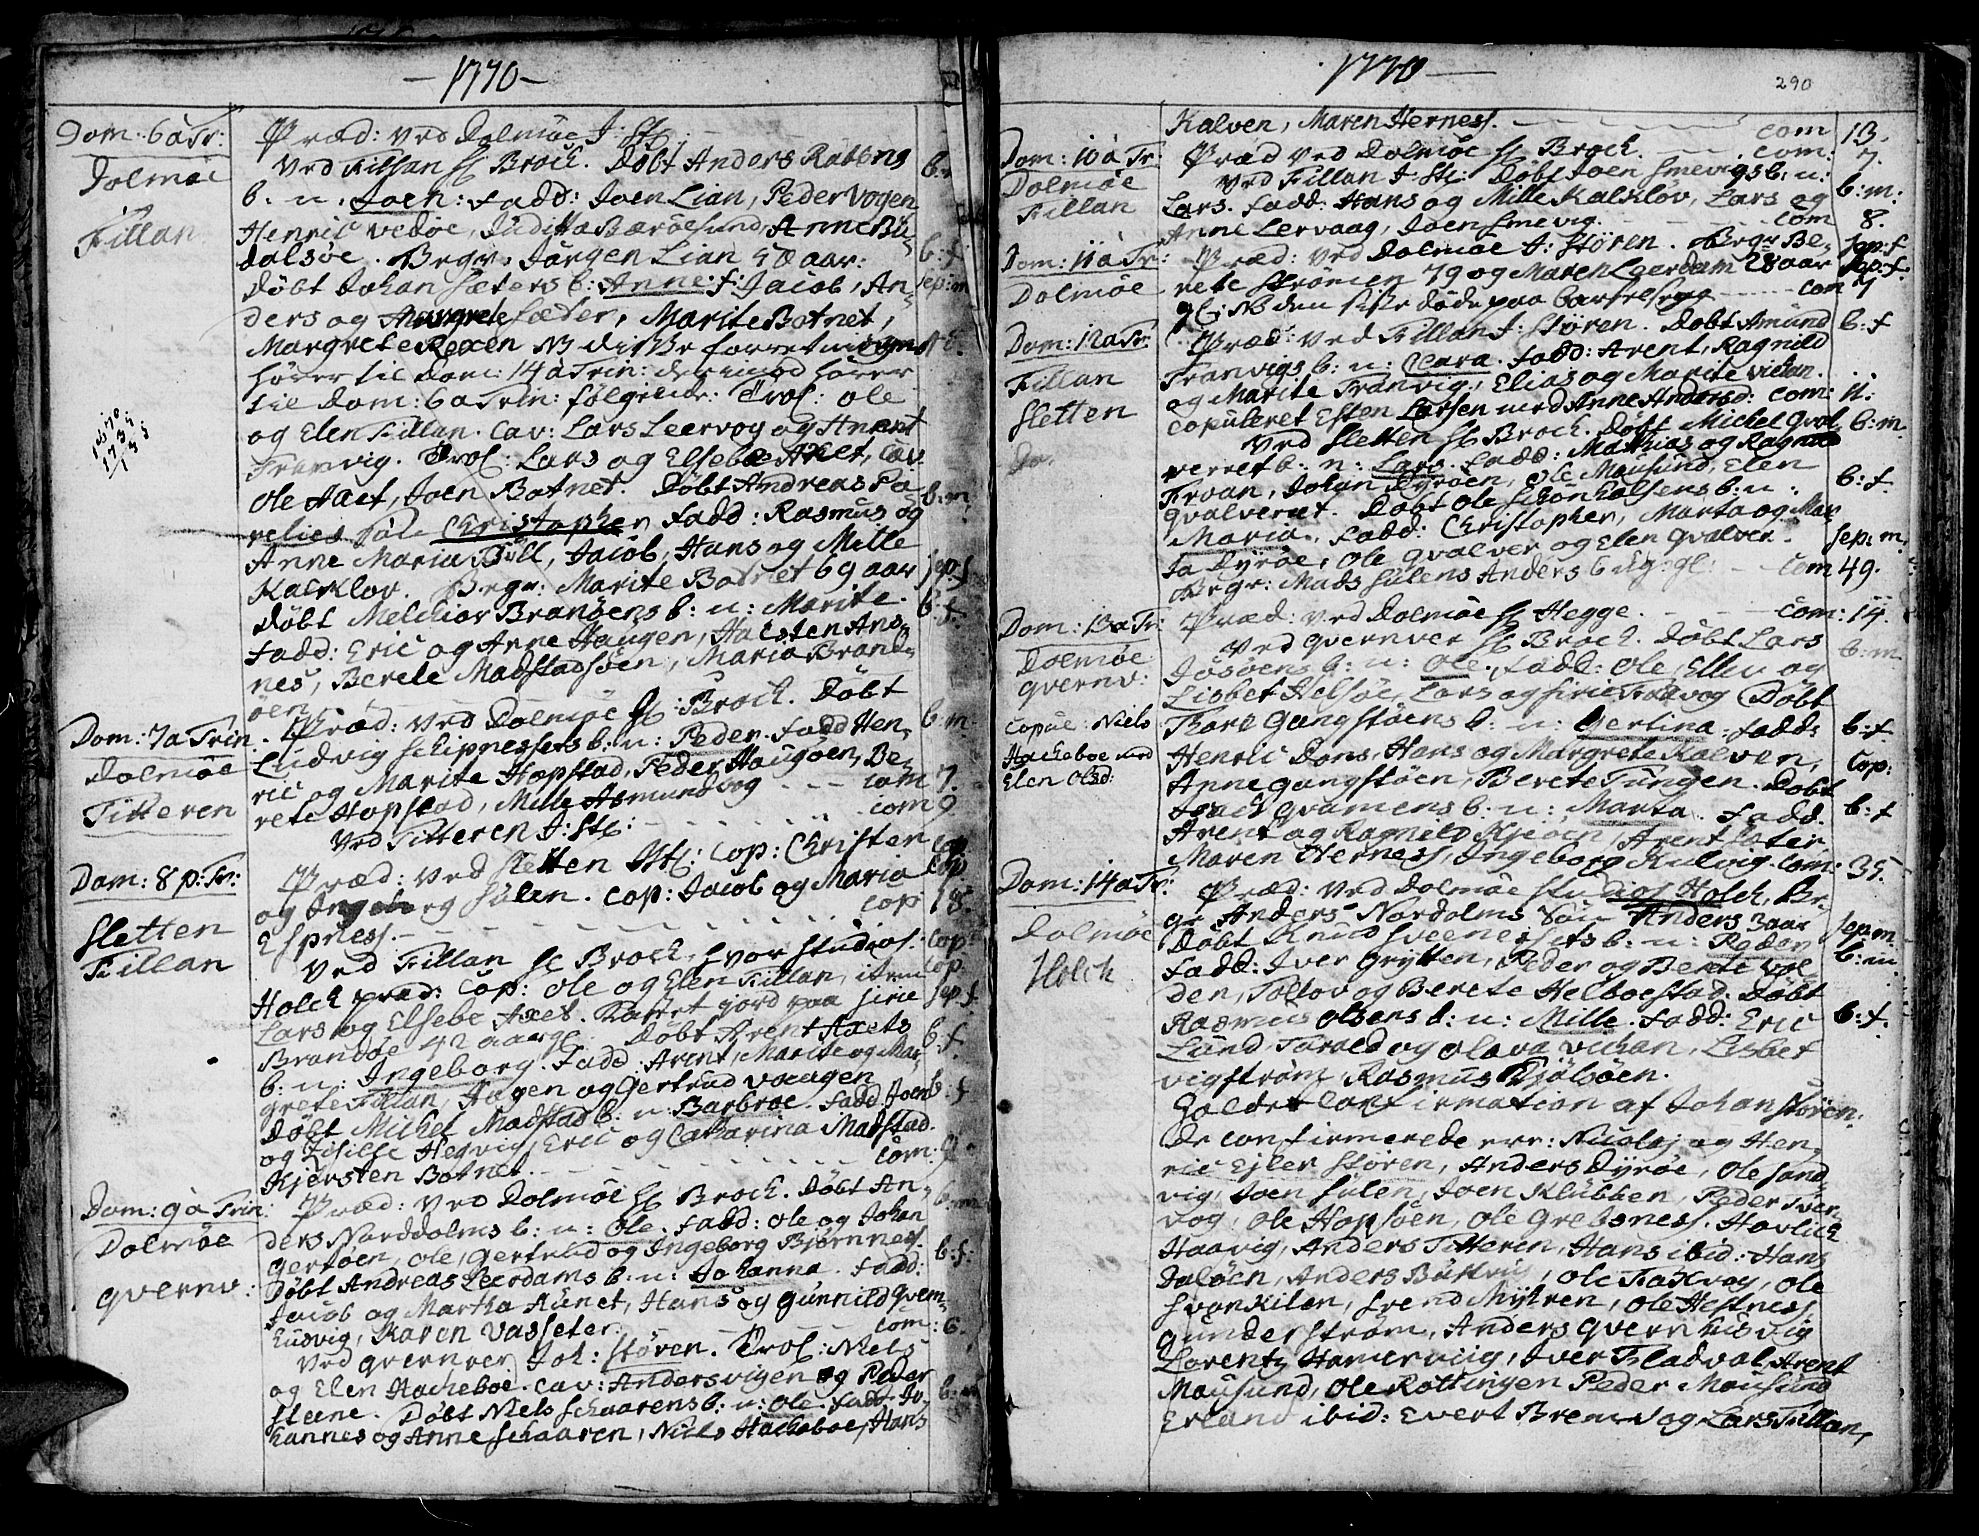 — 1770 —
Dom: 6 a Tr:
Dolmöe
Fillan
Præd: ved Dolmöe J: St:
Ved Fillan H Broch. Döbt Anders Rabbens
b: u: Joen: fadd: Joen Lian, Peder Vogen
Henric Vedöe, Juditta Bæröesund, Anne Bü-
dalsöe. Begr: Jörgen Lian 50 aar:
Döbt Johan Sæters b: Anne: f: Jacob, An-
ders og Margrete Sæter, Marite Botnet,
Margrete Rexen NB disse forretninger
hörer til Dom: 14 a Trin: derimod hörer
til Dom: 6 a Trin: fölgende: Trol: Ole
og Elen Fillan. Cav: Lars Leervog og Anders
Tranvig. Trol: Lars og Elsebe Axet, Cav
Ole Axet, Joen Botnet. Döbt Andreas Fa
Christopher fadd: Rasmus og
Anne Maria Bull, Jacob, Hans og Mille
Kalklov. Begr: Marite Botnet 69 aar
Döbt Melchior Brandöens b: u: Marite.
Fadd: Eric og Anne Haugen, Halsten Ans-
nes, Berete Madstadöen, Maria Brand-
öen
b: f:
sep: m
b: m
sep: f
b: f:
Dom: 7 a Trin.
Dolmöe
Titteren
Præd: ved Dolmöe H: Broch. Döbt
Ludvig Schipnessets b: u: Peder. fadd Hen-
ric og Marite Hopstad, Peder Haugöen, Be-
rete Hopstad, Mille Asmundvog - - - com 7.
Ved Titteren J: St: com 9
b: m.
Dom: 8 p: Tr:
Sletten
Fillan
Præd: ved Sletten St: Cop: Christen
og Ingeborg Sulen. Cop: Jacob og Maria
Espness. com 18.
Ved Fillan H Broch, hvor Studios:
Holch præd: Cop: Ole og Elen Fillan, item
Lars og Elsebe Axet. Kastet jord paa Sirie
Brandöe 42 aar gl. Döbt Arent Axets
b: u: Ingeborg. Fadd: Arent, Marite og Mar-
grete Fillan, Hagen og Gertrud Vaagen
Döbt Michel Madstad b: u: Barbroe. Fadd Joen
og Zisille Hegvig, Eric og Catharina Madstad.
Kjersten Botnet. com:
cop
cop
cop:
cop:
sep: f
b: f.
b: f
Dom: 9 a Trin:
Dolmöe
Qvernv:
Præd: ved Dolmöe H Broch. Döbt An-
ders Norddolms b: u: Ole. Fadd: Ole og Johan
Gertöen, Ole, Gertrud og Ingeborg Björnnes.
Döbt Andreas Leerdams b: u: Johanna. Fadd:
Jacob og Martha Aunet, Hans og Gunnild Qvern-
husvig, Karen Vasseter. com: 6.
Ved Qvernver Joh: Stören. Trol: Niels
og Elen Hacheboe. Cav: Anders Vigen og Peder
Steene. Döbt Niels Schaarens b: u: Ole. Fadd: Jo-
hannes og Anne Schaaren, Niels Hacheboe, Hans
b: m
b: f:
b: m
— 1770 —
290
Kalven, Maren Herness. com 13.
Dom: 10 a Tr:
Dolmöe
Fillan
Præd ved Dolmöe H Broch. com: 7.
Ved Fillan J: St: Döbt Joen Smevigs b: u:
Lars. Fadd: Hans og Mille Kalklov, Lars og
Anne Lervaag, Joen Smevig. com 8.
b: m:
Dom: 11 a Tr:
Dolmöe
Præd: ved Dolmöe J: Stören. Begr Be-
rete Strömen 79 og Maren Leerdam 28 aar
gl: NB den siste döde paa barselseng com 7
sep: f
sep: f.
Dom: 12 a Tr:
Fillan
Sletten
do.
Præd: ved Fillan J: Stören. Döbt Amund
Tranvigs b: u: Clara. Fadd: Arent, Ragnild
og Marite Tranvig, Elias og Marite Vichan.
Copuleret Esten Larsen med Anne Andersd: com: 11.
Ved Sletten H Broch. Döbt Michel Qval
verret b: n: Lars. Fadd: Mathias og Ragnild
Froan, Johan Dyröen, Ole Mausund, Elen
Qvalveret. Döbt Ole Schönhalsens b: u:
Maria. Fadd: Christopher, Marta og Mar
ta Dyröe, Ole Qvalver og Elen Qvalver.
Begr: Mads Sulens Anders 6 ug: gl: - - com 49.
b: f
b: m.
b: f.
sep: m.
Dom: 13 a Tr:
Dolmöe
Qvernv:
Copul: Niels
Hacheboe med
Elen Olsd:
Præd: ved Dolmöe H Hegge. com: 14.
Ved Qvernver H Broch. Döbt Lars
Jösöens b: u: Ole. Fadd: Ole, Ellen og
Lisbet Helsöe, Lars og Sirie Döbt
Tharl Gangstöens b: u: Fadd:
Henric Dons, Hans og Margrete Kalven,
Anne Gangstöen, Berete Tungen. Döbt
Isach Qvamens b: u: Marta. Fadd:
Arent og Ragnild Kjeöen, Arent Sæter
Maren Herness, Ingeborg Kulvig. com: 35.
b: m
b: f.
Cop:
b: f
Dom: 14 a Tr:
Dolmöe
Holch
Præd: ved Dolmöe Studios Holch, Be-
gr: Anders Nordolms sön Anders 3 aar
Döbt Knud Sveenersets b: u: Peder
Fadd: Iver Grytten, Peder og Berete Vol-
den, Tollov og Berete Helboestad. Döbt
Rasmus Olsens b: u: Mille. Fadd: Eric
Lund, Tarald og Olava Vichan, Lisbet
Vigström, Rasmus Djölöen.
Holdet Confirmation af Johan Stören:
De confirmerede ere: Nicolaj og Hen-
ric Ejler Stören, Anders Dyröe, Ole Sand-
vig, Joen Sulen, Joen Klubben, Peder Tver-
vog, Ole Hopsöen, Ole Gretsness. Havlich
Haavig, Anders Titteren, Hans ibid: Hans
Dalöen, Anders Butvig, Ole Faxvog, Ole
Svankilen, Svend Myhren, Ole Hestness
Gunder Ström, Anders Qvernhusvig
Lorentz Hamerviig, Iver Fladval, Arent
Mausund, Ole Rottingen Peder Mausund
Erland ibid: Evert Bremvog Lars Fillan,
sep: m.
b: m.
b: f.